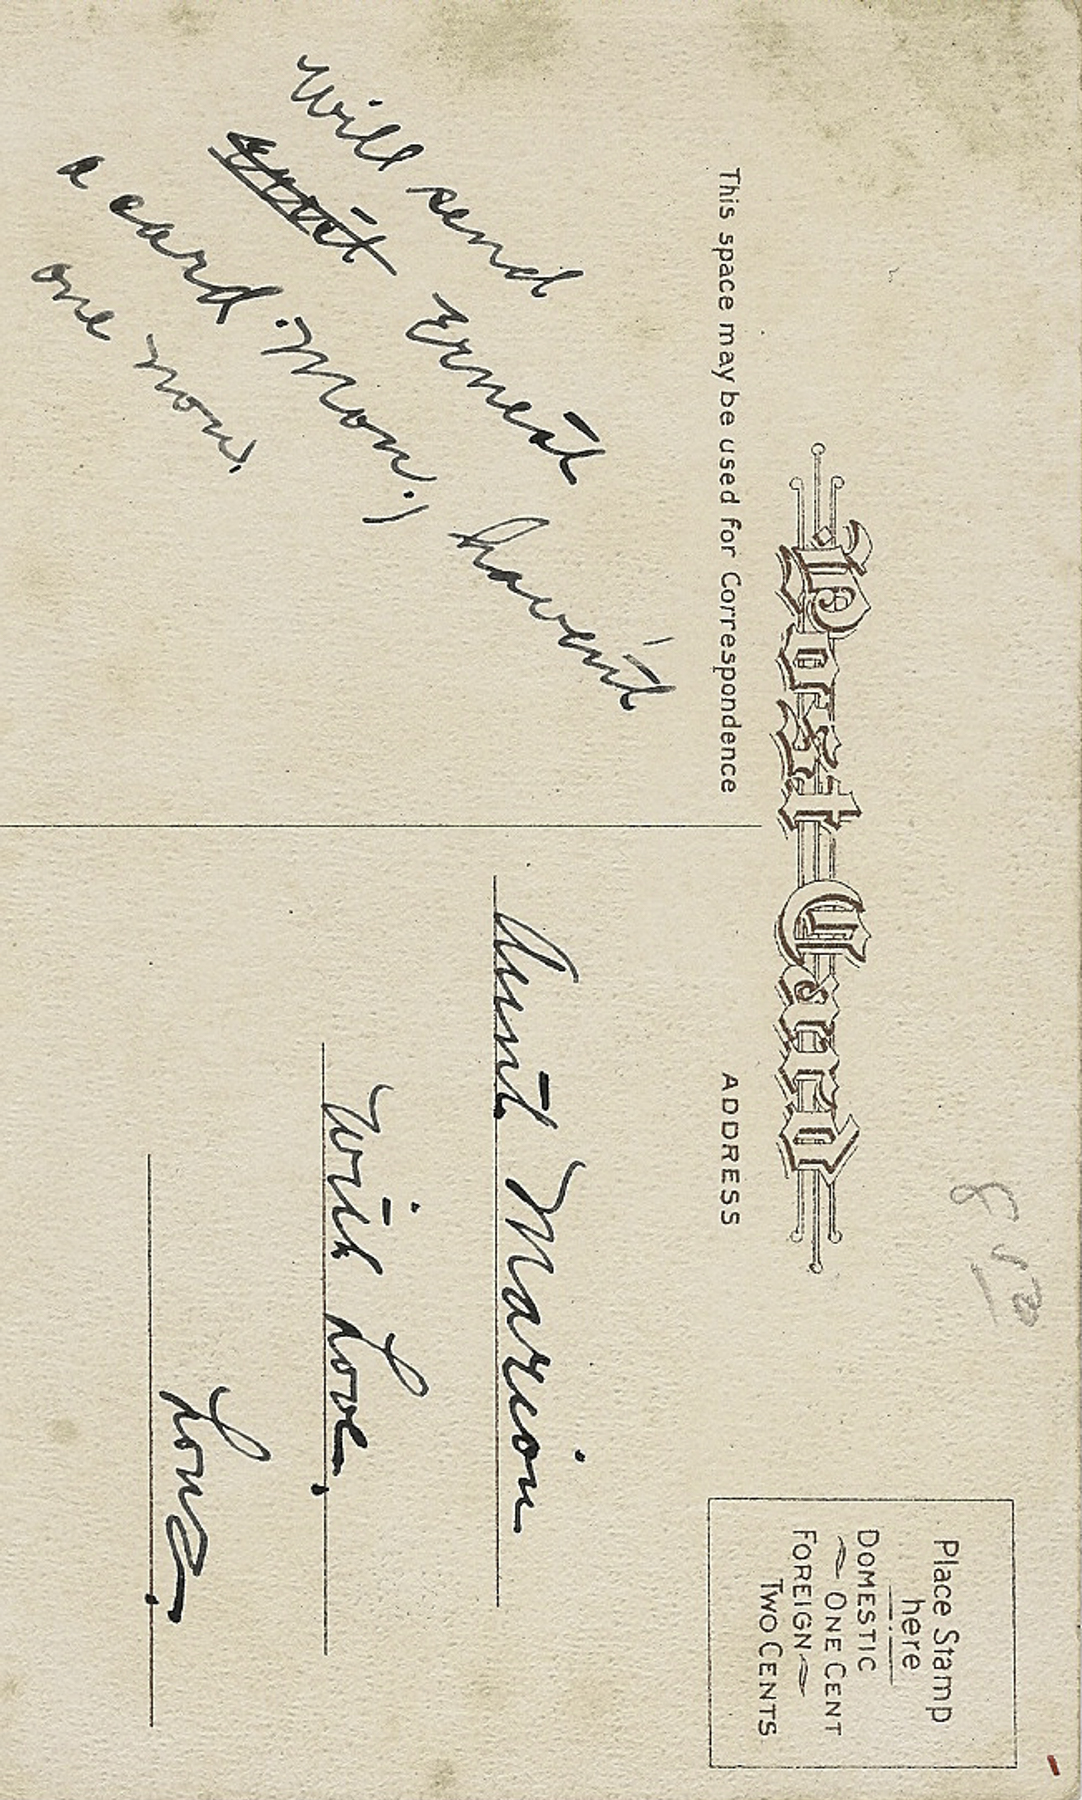 Post Card
This space may be used for Correspondence
ADDRESS
Place Stamp
here
DOMESTIC
ONE CENT
FOREIGN
TWO CENTS
Will send
Ernest
a card Mon. I haven't
one now.
Aunt Marion
With Love.